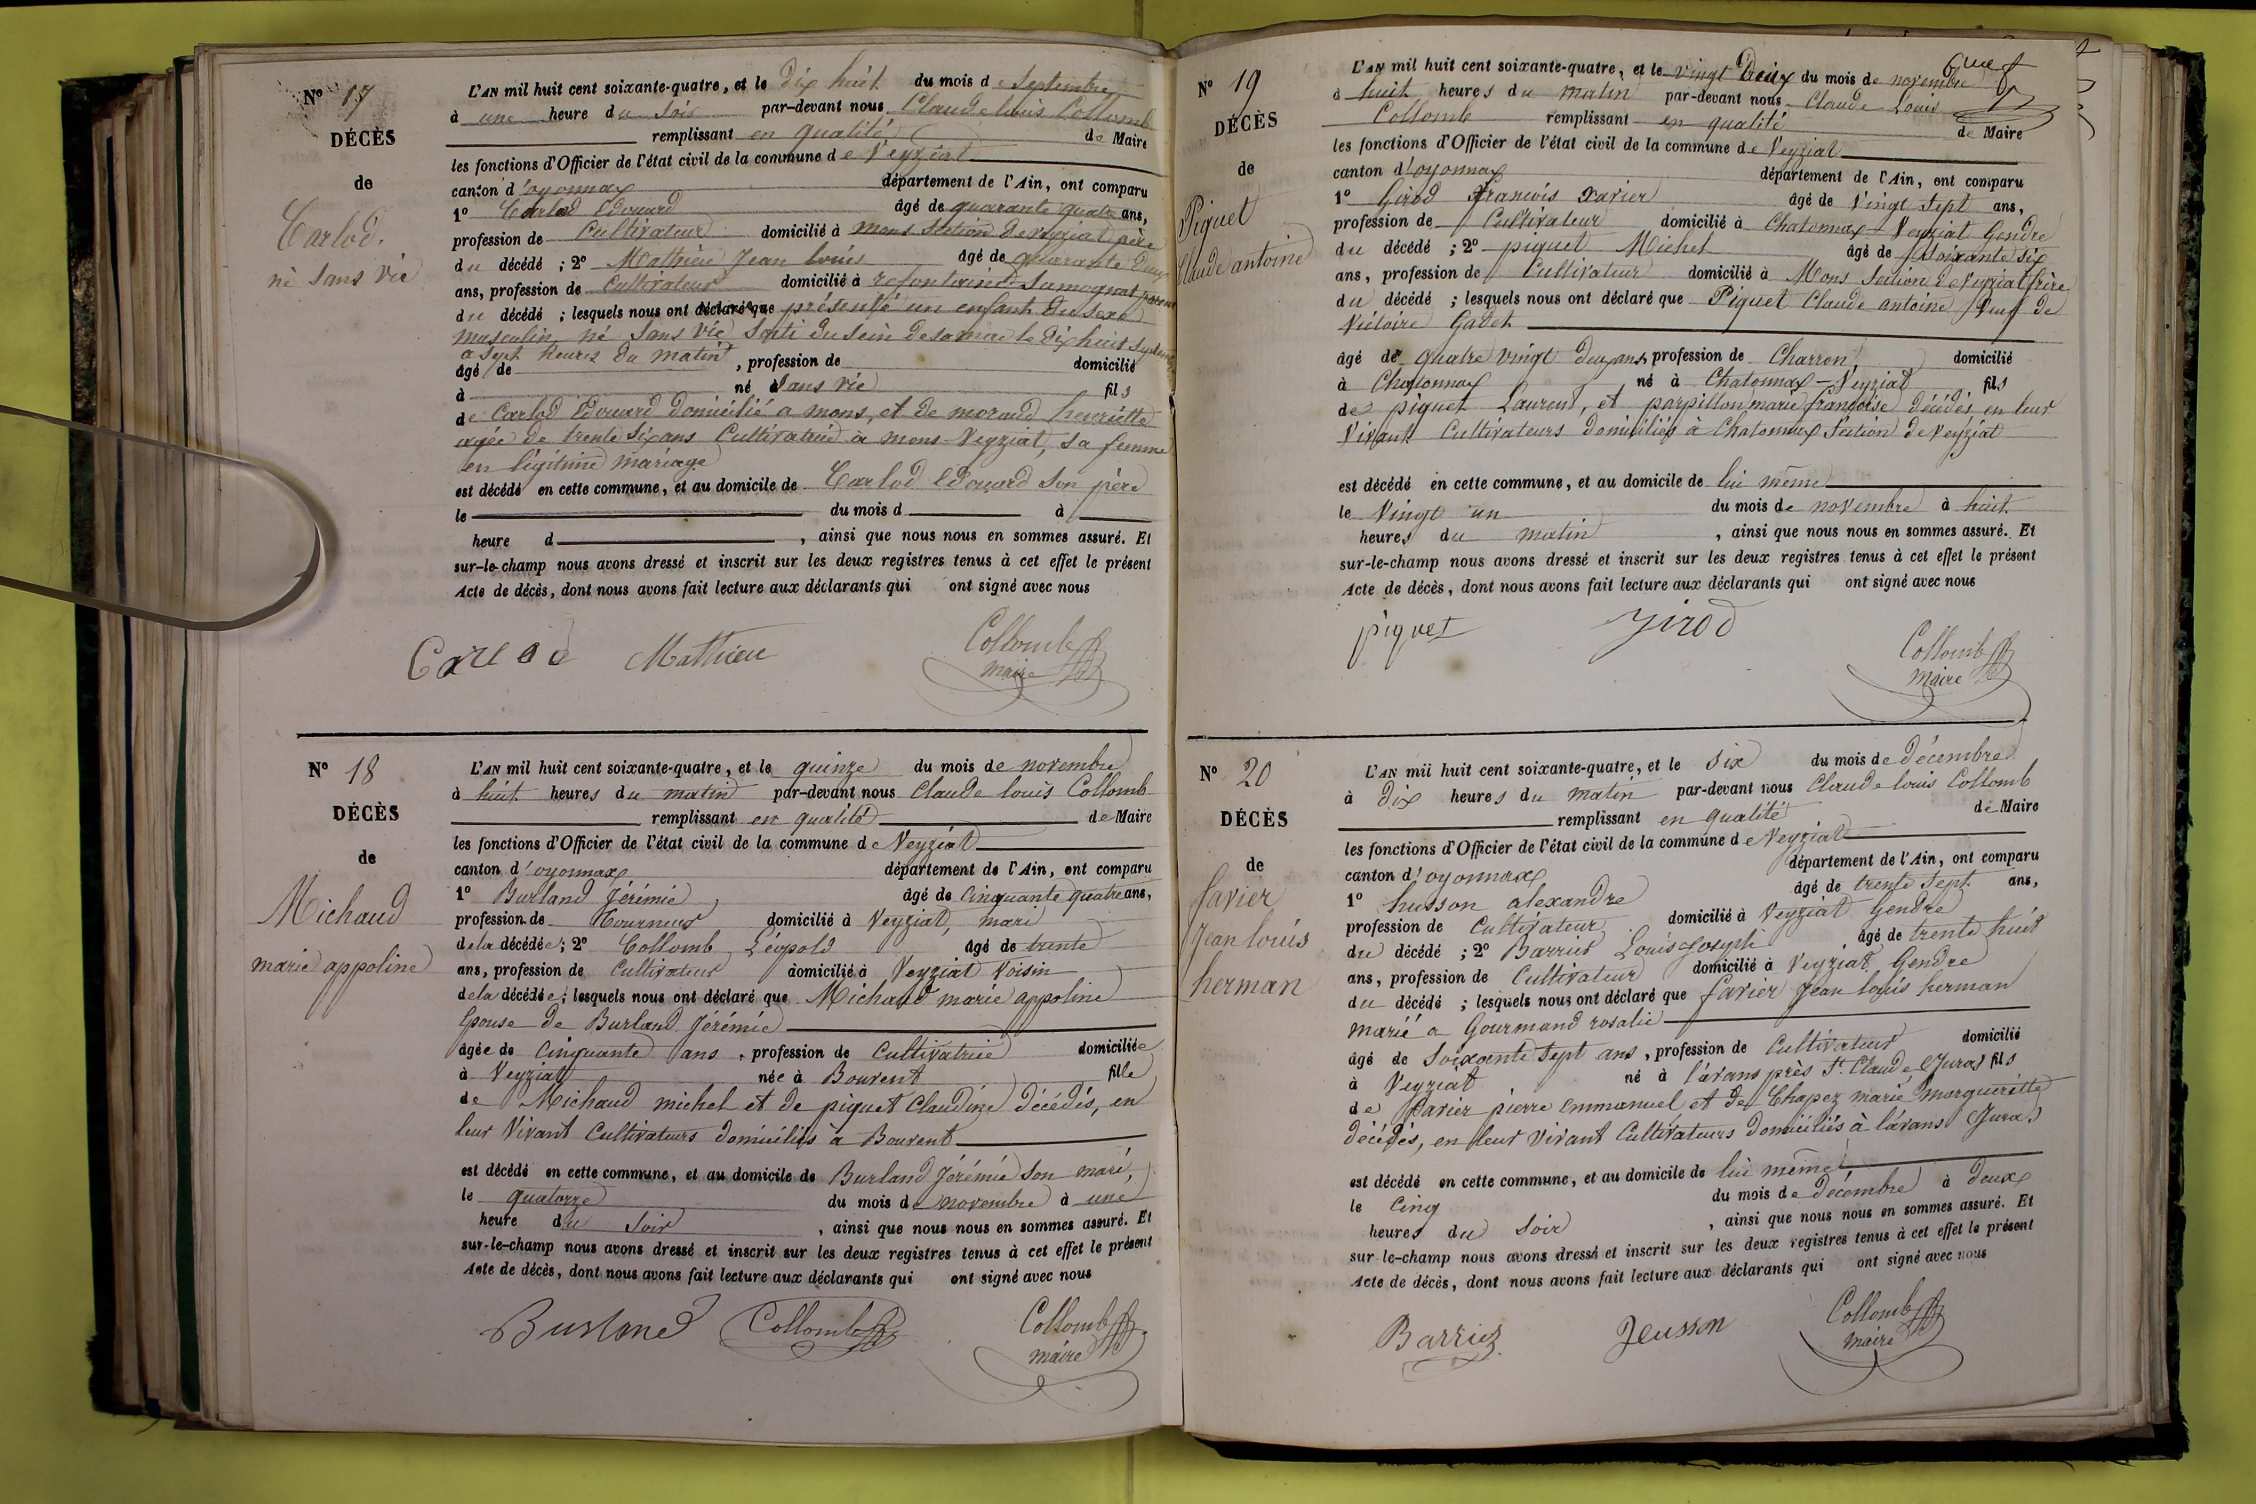 N° 17
DÉCÈS
de
Carlod.
né sans vie
L'AN mil huit cent soixante-quatre, et le dix huit du mois de Septembre
à une heure du Soir par-devant nous Claude louis Collomb
remplissant en qualité de Maire
les fonctions d'Officier de l'état civil de la commune de Veyziat
canton d'oyonnax département de l'Ain, ont comparu
1° Carlod Edouard âgé de quarante quatre ans,
profession de Cultivateur domicilié à mons Section de veyziat père
du décédé ; 2° Mathieu Jean louis âgé de quarante deux
ans, profession de Cultivateur domicilié à Samognat
du décédé ; lesquels nous ont déclaré que présenté un enfant du sexe
masculin né sans vie Sorti du sein de sa mère le dix huit Septembre
a sept heures du matin
âgé de , profession de domicilié
à né Sans vie fils
de Carlod Edouard domicilié a mons, et de morand henriette
agée de trente six ans Cultivatrice à mons Veyziat, sa femme
en légitime mariage
est décédé en cette commune, et au domicile de Carlod Edouard son père
le du mois d à
heure d , ainsi que nous nous en sommes assuré. Et
sur-le-champ nous avons dressé et inscrit sur les deux registres tenus à cet effet le présent
Acte de décès, dont nous avons fait lecture aux déclarants qui ont signé avec nous
Carlod Mathieu Collomb
maire
N° 18
DÉCÈS
de
Michaud
marie appoline
L'AN mil huit cent soixante-quatre, et le quinze du mois de novembre
à huit heures du matin par-devant nous Claude louis Collomb
remplissant en qualité de Maire
les fonctions d'Officier de l'état civil de la commune de Veyziat
canton d'oyonnax département de l'Ain, ont comparu
1° Burland Jérémie âgé de Cinquante quatre ans,
profession de Tourneur domicilié à Veyziat, mari
de la décédée; 2° Collomb Léopold âgé de trente
ans, profession de Cultivateur domicilié à Veyziat Voisin
de la décédée; lesquels nous ont déclaré que Michaud marie appoline
Epouse de Burland Jérémie
âgée de Cinquante ans, profession de Cultivatrice domiciliée
à Veyziat née à Bouvent fille
de Michaud michel et de piquet Claudine décédés, en
leur Vivant Cultivateurs domiciliés à Bouvent
est décédé en cette commune, et au domicile de Burland Jérémie son mari,
le quatorze du mois de novembre à une
heure du Soir , ainsi que nous nous en sommes assuré. Et
sur-le-champ nous avons dressé et inscrit sur les deux registres tenus à cet effet le présent
Acte de décès, dont nous avons fait lecture aux déclarants qui ont signé avec nous
Burland Collomb Collomb
maire
N° 19
DÉCÈS
de
Piquet
Claude antoine
L'AN mil huit cent soixante-quatre, et le vingt Deux du mois de novembre
à huit heures du matin par-devant nous Claude Louis
Collomb remplissant en qualité de Maire
les fonctions d'Officier de l'état civil de la commune de Veyziat
canton d'oyonnax département de l'Ain, ont comparu
1° Girod francois xavier âgé de Vingt Sept ans,
profession de Cultivateur domicilié à Chatonnax Veyziat Gendre
du décédé ; 2° piquet Michel âgé de Soixante six
ans, profession de Cultivateur domicilié à Mons Section de Veyziat frère
du décédé ; lesquels nous ont déclaré que Piquet Claude antoine Veuf de
Victoire Gadet
âgé de quatre vingt deux ans, profession de Charron domicilié
à Chatonnax né à Chatonnax - Veyziat fils
de piquet Laurent, et parpillon marie françoise décédés en leur
Vivant Cultivateurs domiciliés à Chatonnax Section de Veyziat
est décédé en cette commune, et au domicile de lui même
le Vingt un du mois de novembre à huit
heures du matin , ainsi que nous nous en sommes assuré. Et
sur-le-champ nous avons dressé et inscrit sur les deux registres tenus à cet effet le présent
Acte de décès, dont nous avons fait lecture aux déclarants qui ont signé avec nous
piquet girod Collomb
maire
N° 20
DÉCÈS
de
favier
Jean louis
herman
L'AN mil huit cent soixante-quatre, et le six du mois de décembre
à dix heures du matin par-devant nous Claude louis Collomb
remplissant en qualité de Maire
les fonctions d'Officier de l'état civil de la commune de Veyziat
canton d'oyonnax département de l'Ain, ont comparu
1° husson alexandre âgé de trente sept ans,
profession de Cultivateur domicilié à Veyziat Gendre
du décédé ; 2° Barrier Louis Joseph âgé de trente huit
ans, profession de Cultivateur domicilié à Veyziat Gendre
du décédé ; lesquels nous ont déclaré que favier Jean louis herman
marié a Gourmand rosalie
âgé de Soixante sept ans, profession de Cultivateur domicilié
à Veyziat né à lavans près St. Claude (Jura) fils
de favier pierre Emmanuel et de Chapez marie margueritte
décédés, en leur vivant Cultivateurs domiciliés à lavans (Jura)
est décédé en cette commune, et au domicile de lui même
le Cinq du mois de décembre à deux
heures du Soir , ainsi que nous nous en sommes assuré. Et
sur-le-champ nous avons dressé et inscrit sur les deux registres tenus à cet effet le présent
Acte de décès, dont nous avons fait lecture aux déclarants qui ont signé avec nous
Barriez heusson Collomb
maire